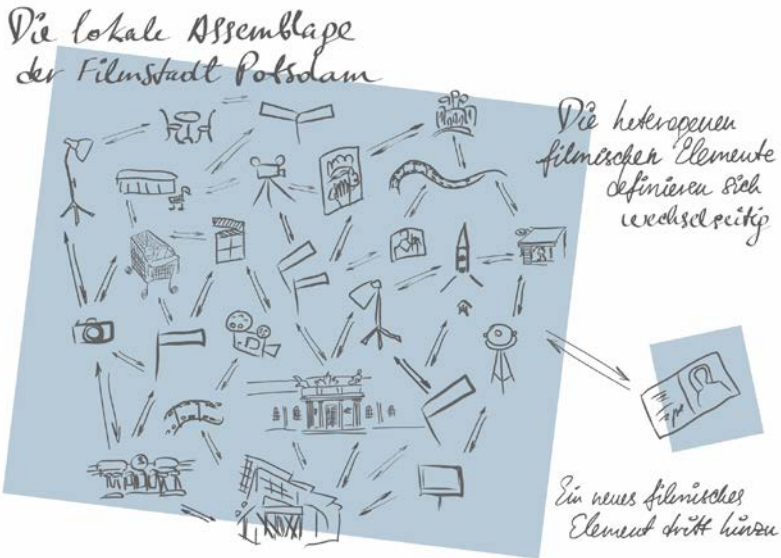 Die lokale Assemblage
der Filmstadt Potsdam
Die heterogenen
filmischen Elemente
definieren sich
wechselseitig
Ein neues filmisches
Element tritt hinzu